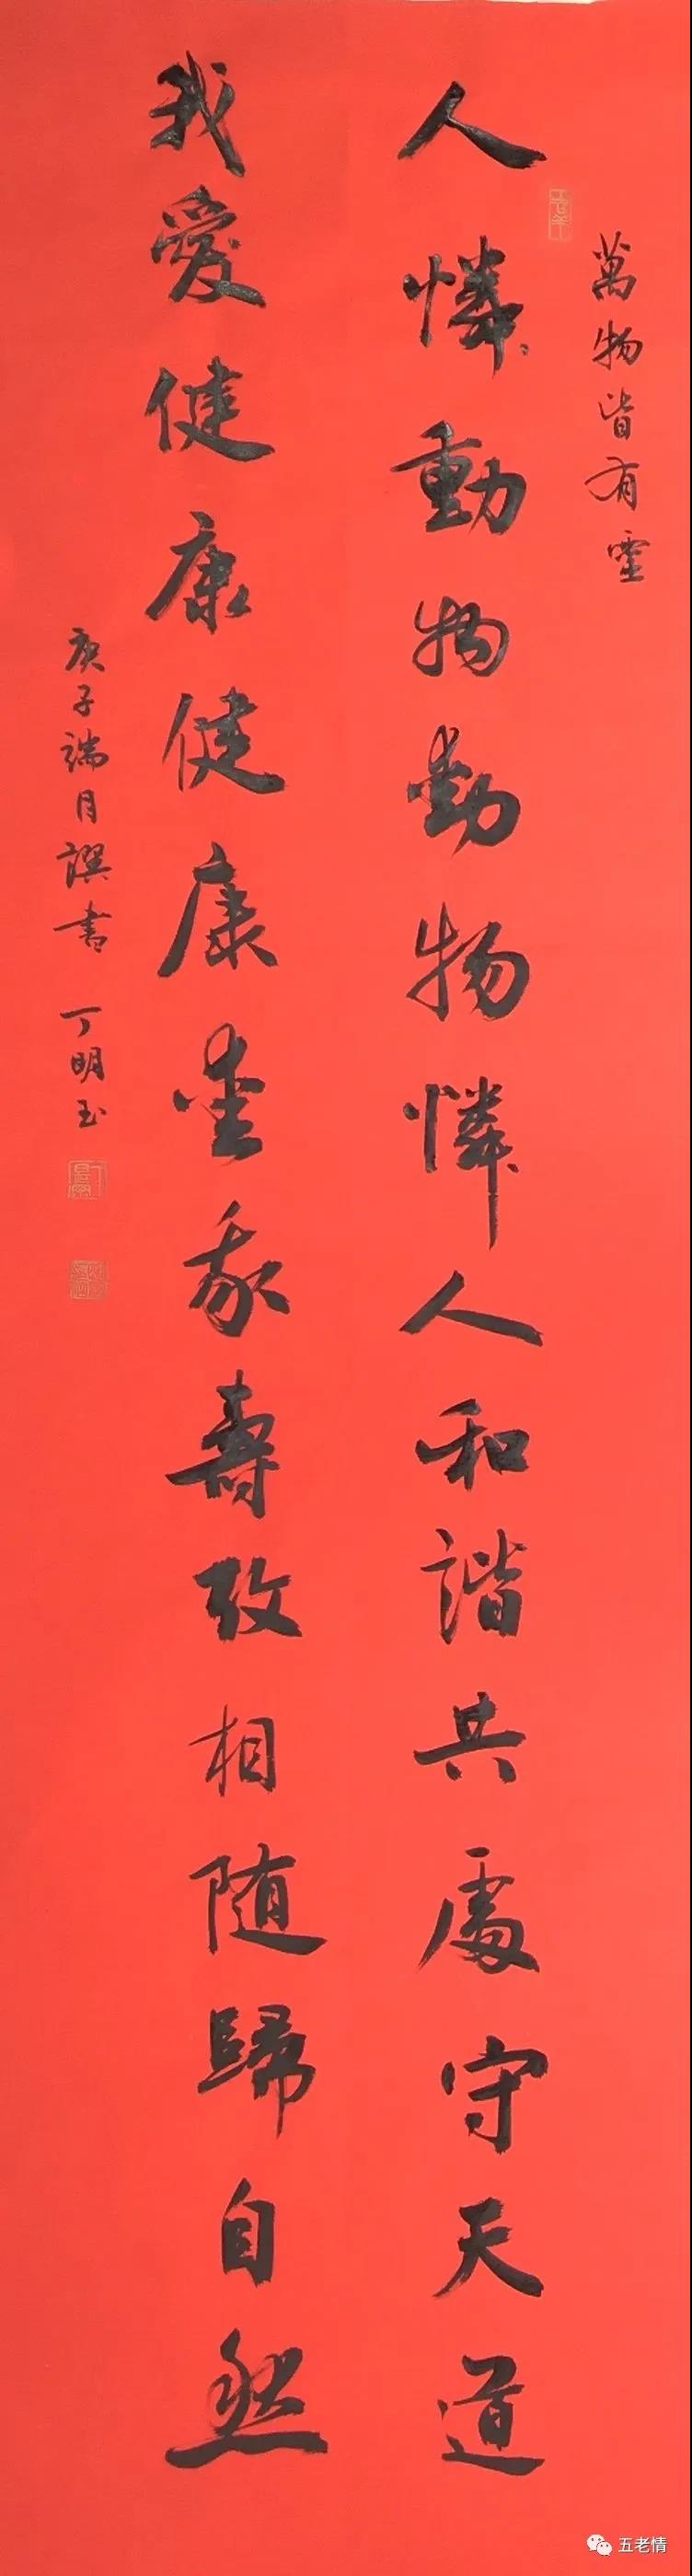 萬物皆有靈
人憐動物動物憐人和諧共處守天道
我愛健康健康愛我壽攷相随歸自然
庚子端月譔書 丁明玉
五老情